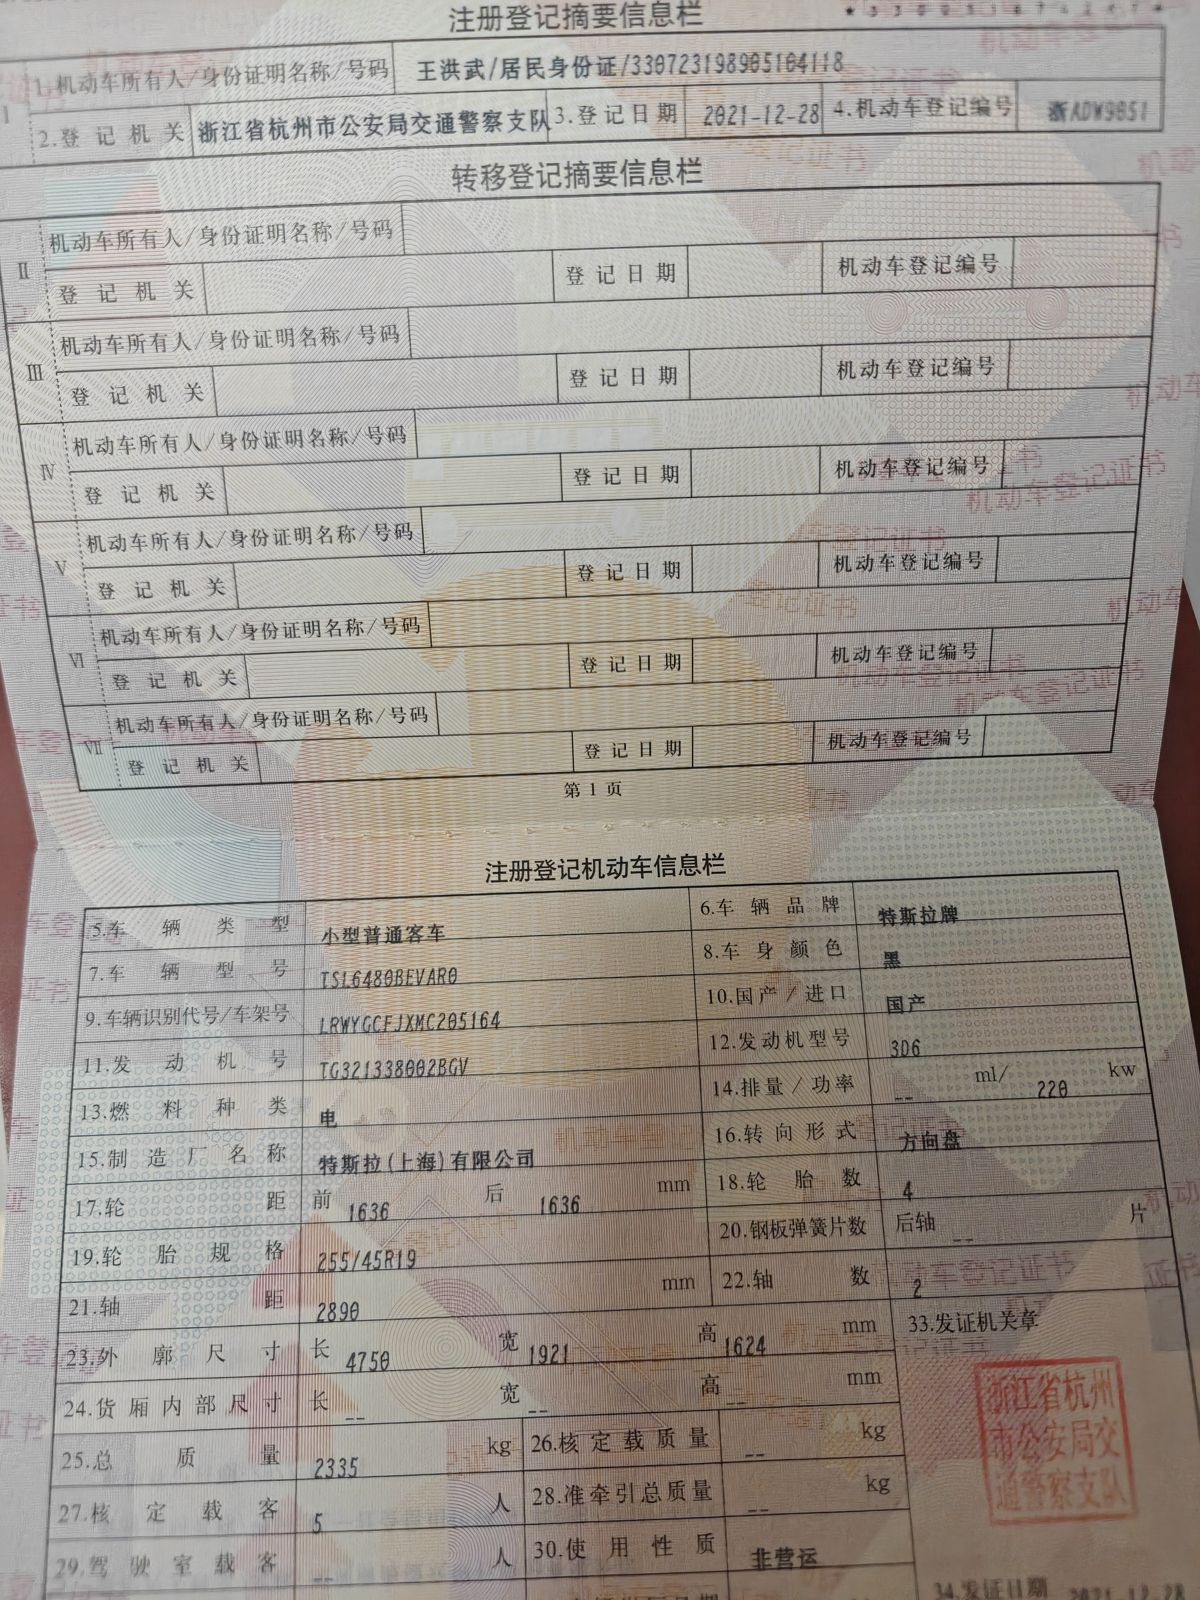 注册登记摘要信息栏
1.机动车所有人/身份证明名称/号码 王洪武/居民身份证/330723198905104118
Ⅰ
2.登记机关 浙江省杭州市公安局交通警察支队 3.登记日期 2021-12-28 4.机动车登记编号 浙ADW9851
转移登记摘要信息栏
机动车所有人/身份证明名称/号码
Ⅱ
登记机关 登记日期 机动车登记编号
机动车所有人/身份证明名称/号码
Ⅲ
登记机关 登记日期 机动车登记编号
机动车所有人/身份证明名称/号码
Ⅳ
登记机关 登记日期 机动车登记编号
机动车所有人/身份证明名称/号码
Ⅴ
登记机关 登记日期 机动车登记编号
机动车所有人/身份证明名称/号码
Ⅵ
登记机关 登记日期 机动车登记编号
机动车所有人/身份证明名称/号码
Ⅶ
登记机关 登记日期 机动车登记编号
第1页
注册登记机动车信息栏
5.车辆类型 小型普通客车 6.车辆品牌 特斯拉牌
7.车辆型号 TSL6480BEVAR0 8.车身颜色 黑
9.车辆识别代号/车架号 LRWYGCFJXMC205164 10.国产/进口 国产
11.发动机号 TG321338002BGV 12.发动机型号 3D6
13.燃料种类 电 14.排量/功率 -- ml/ 220 kw
15.制造厂名称 特斯拉(上海)有限公司 16.转向形式 方向盘
17.轮距 前 1636 后 1636 mm 18.轮胎数 4
19.轮胎规格 255/45R19 20.钢板弹簧片数 后轴 -- 片
21.轴距 2890 mm 22.轴数 2
23.外廓尺寸 长 4750 宽 1921 高 1624 mm 33.发证机关章
24.货厢内部尺寸 长 -- 宽 -- 高 -- mm
浙江省杭州
市公安局交
通警察支队
25.总质量 2335 kg 26.核定载质量 -- kg
27.核定载客 5 人 28.准牵引总质量 -- kg
29.驾驶室载客 -- 人 30.使用性质 非营运
34.发证日期 2021-12-28